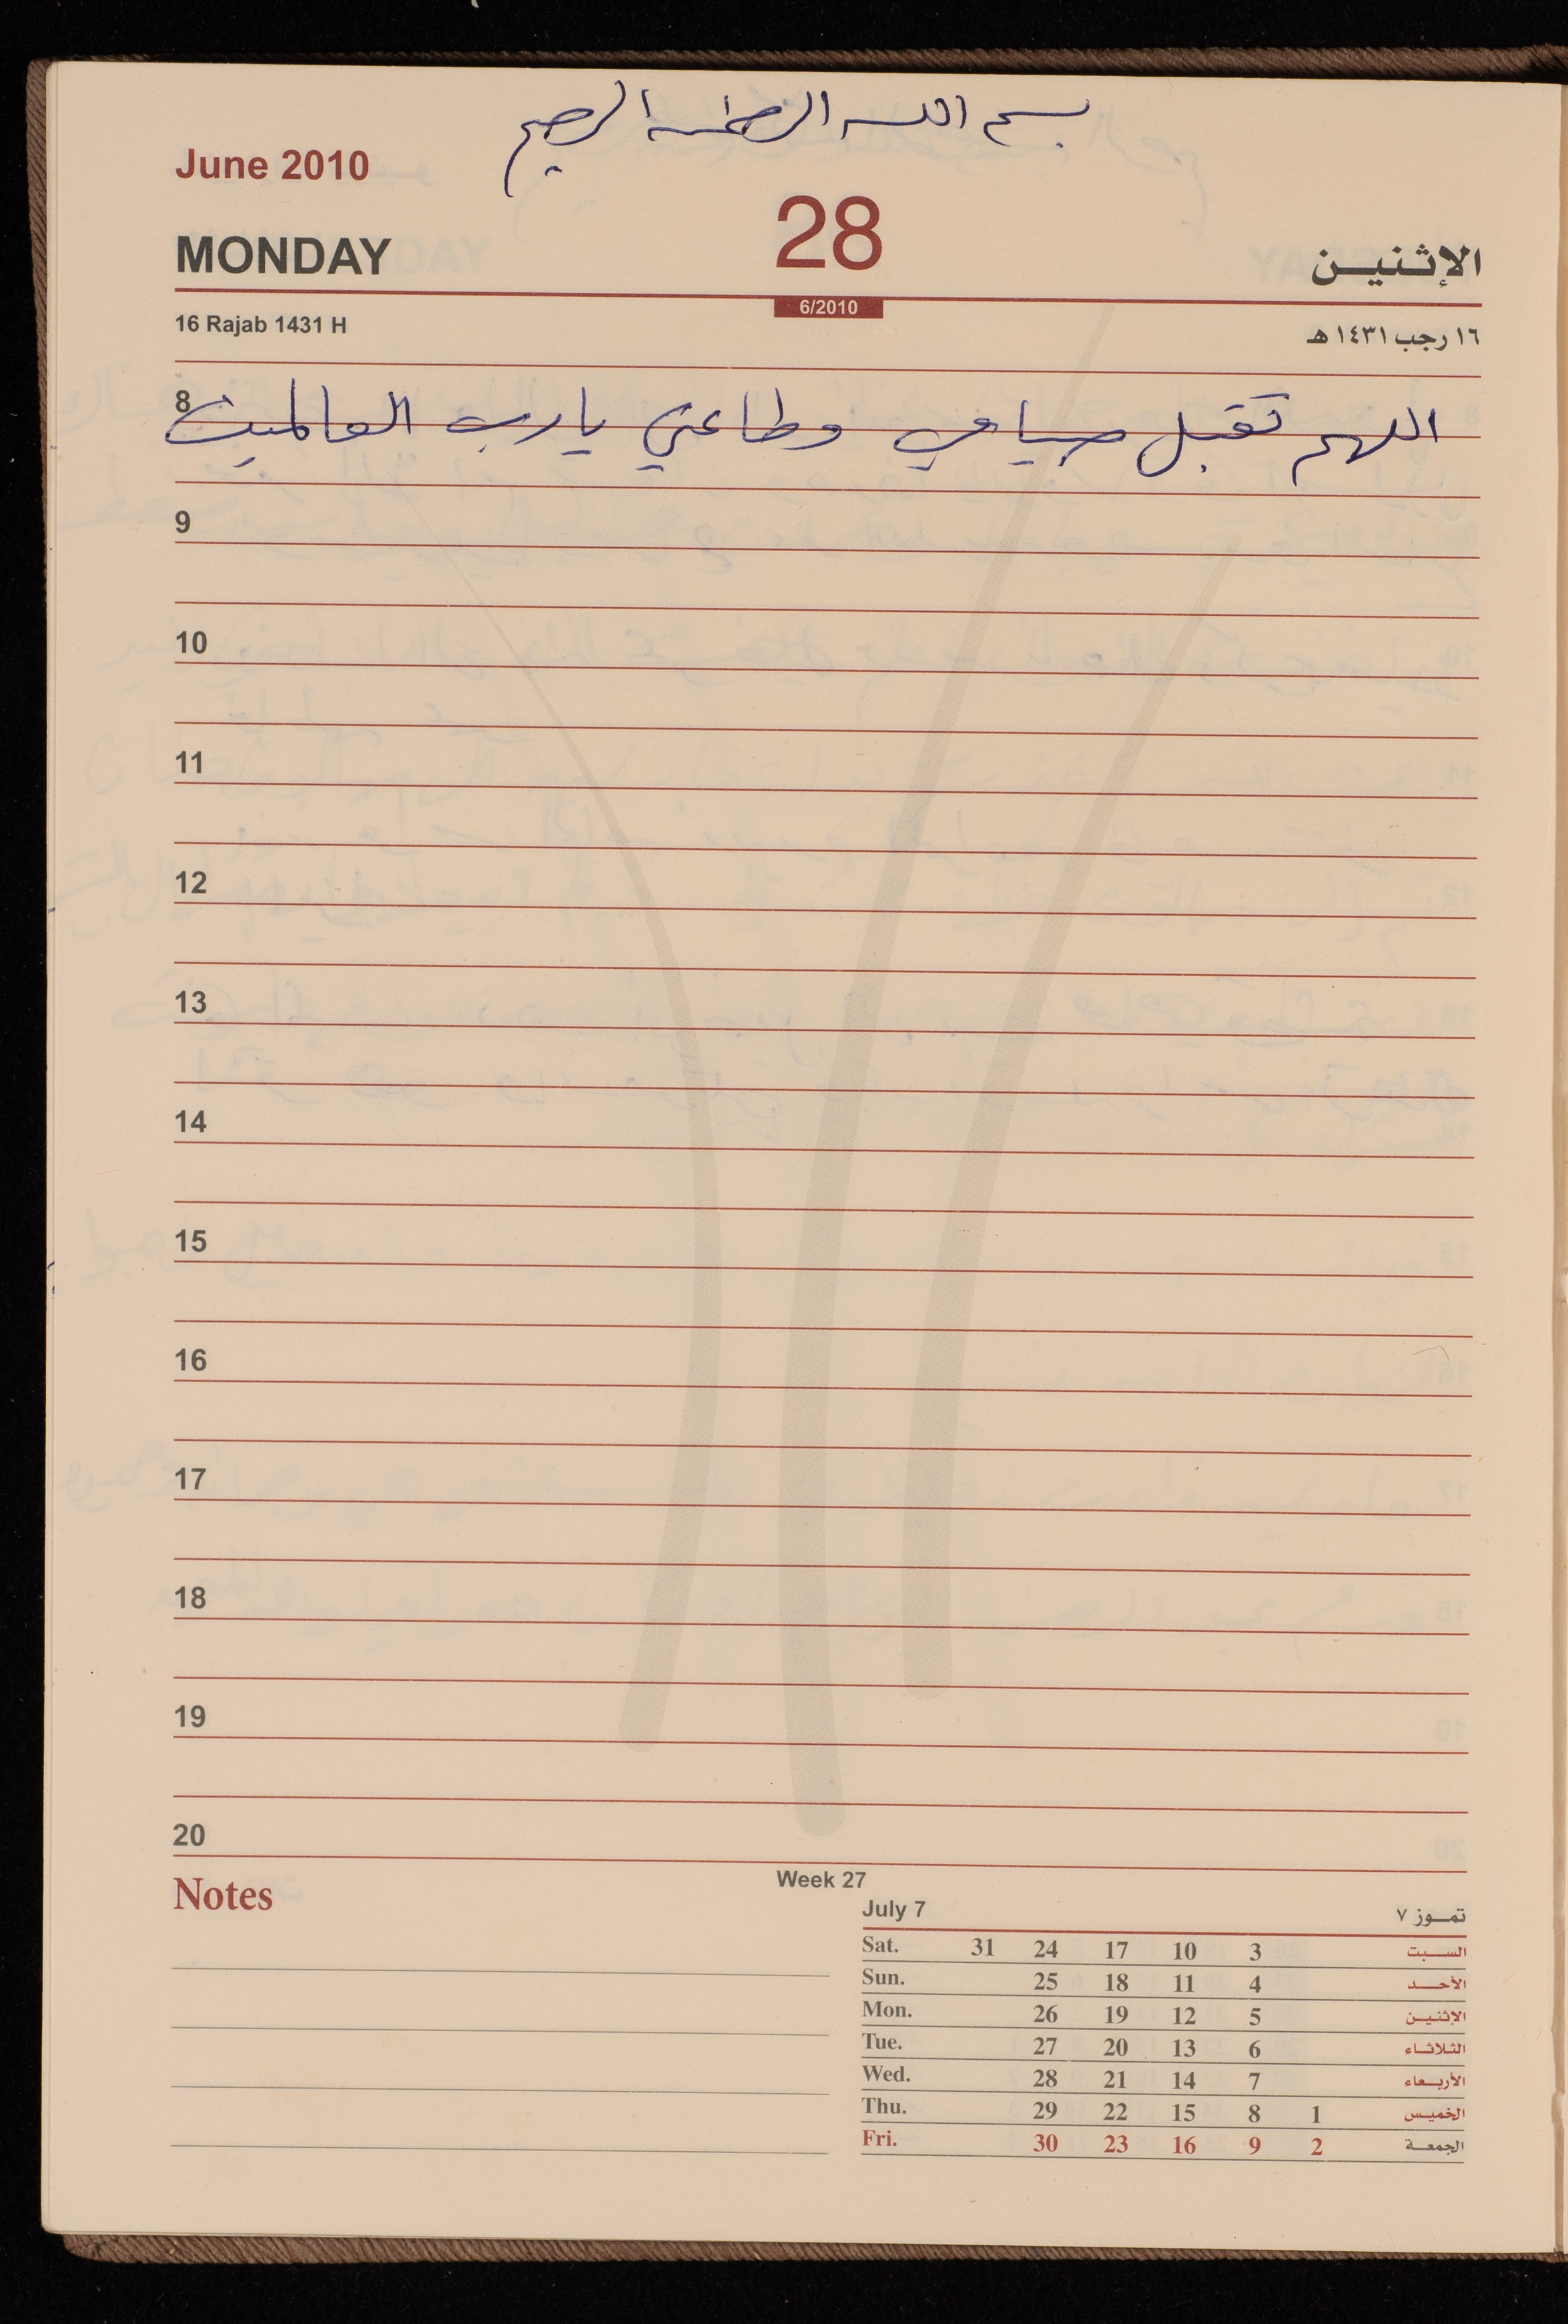 بسم الله الرحمن الرحيم
June 2010
MONDAY 28 الإثنين
6/2010
16 Rajab 1431 H ١٦ رجب ١٤٣١ هـ
8 اللهم تقبل صيامي وطاعتي يا رب العالمين
9
10
11
12
13
14
15
16
17
18
19
20
Notes
Week 27
July 7 تموز ٧
Sat. 31 24 17 10 3 السبت
Sun. 25 18 11 4 الأحد
Mon. 26 19 12 5 الإثنين
Tue. 27 20 13 6 الثلاثاء
Wed. 28 21 14 7 الأربعاء
Thu. 29 22 15 8 1 الخميس
Fri. 30 23 16 9 2 الجمعة